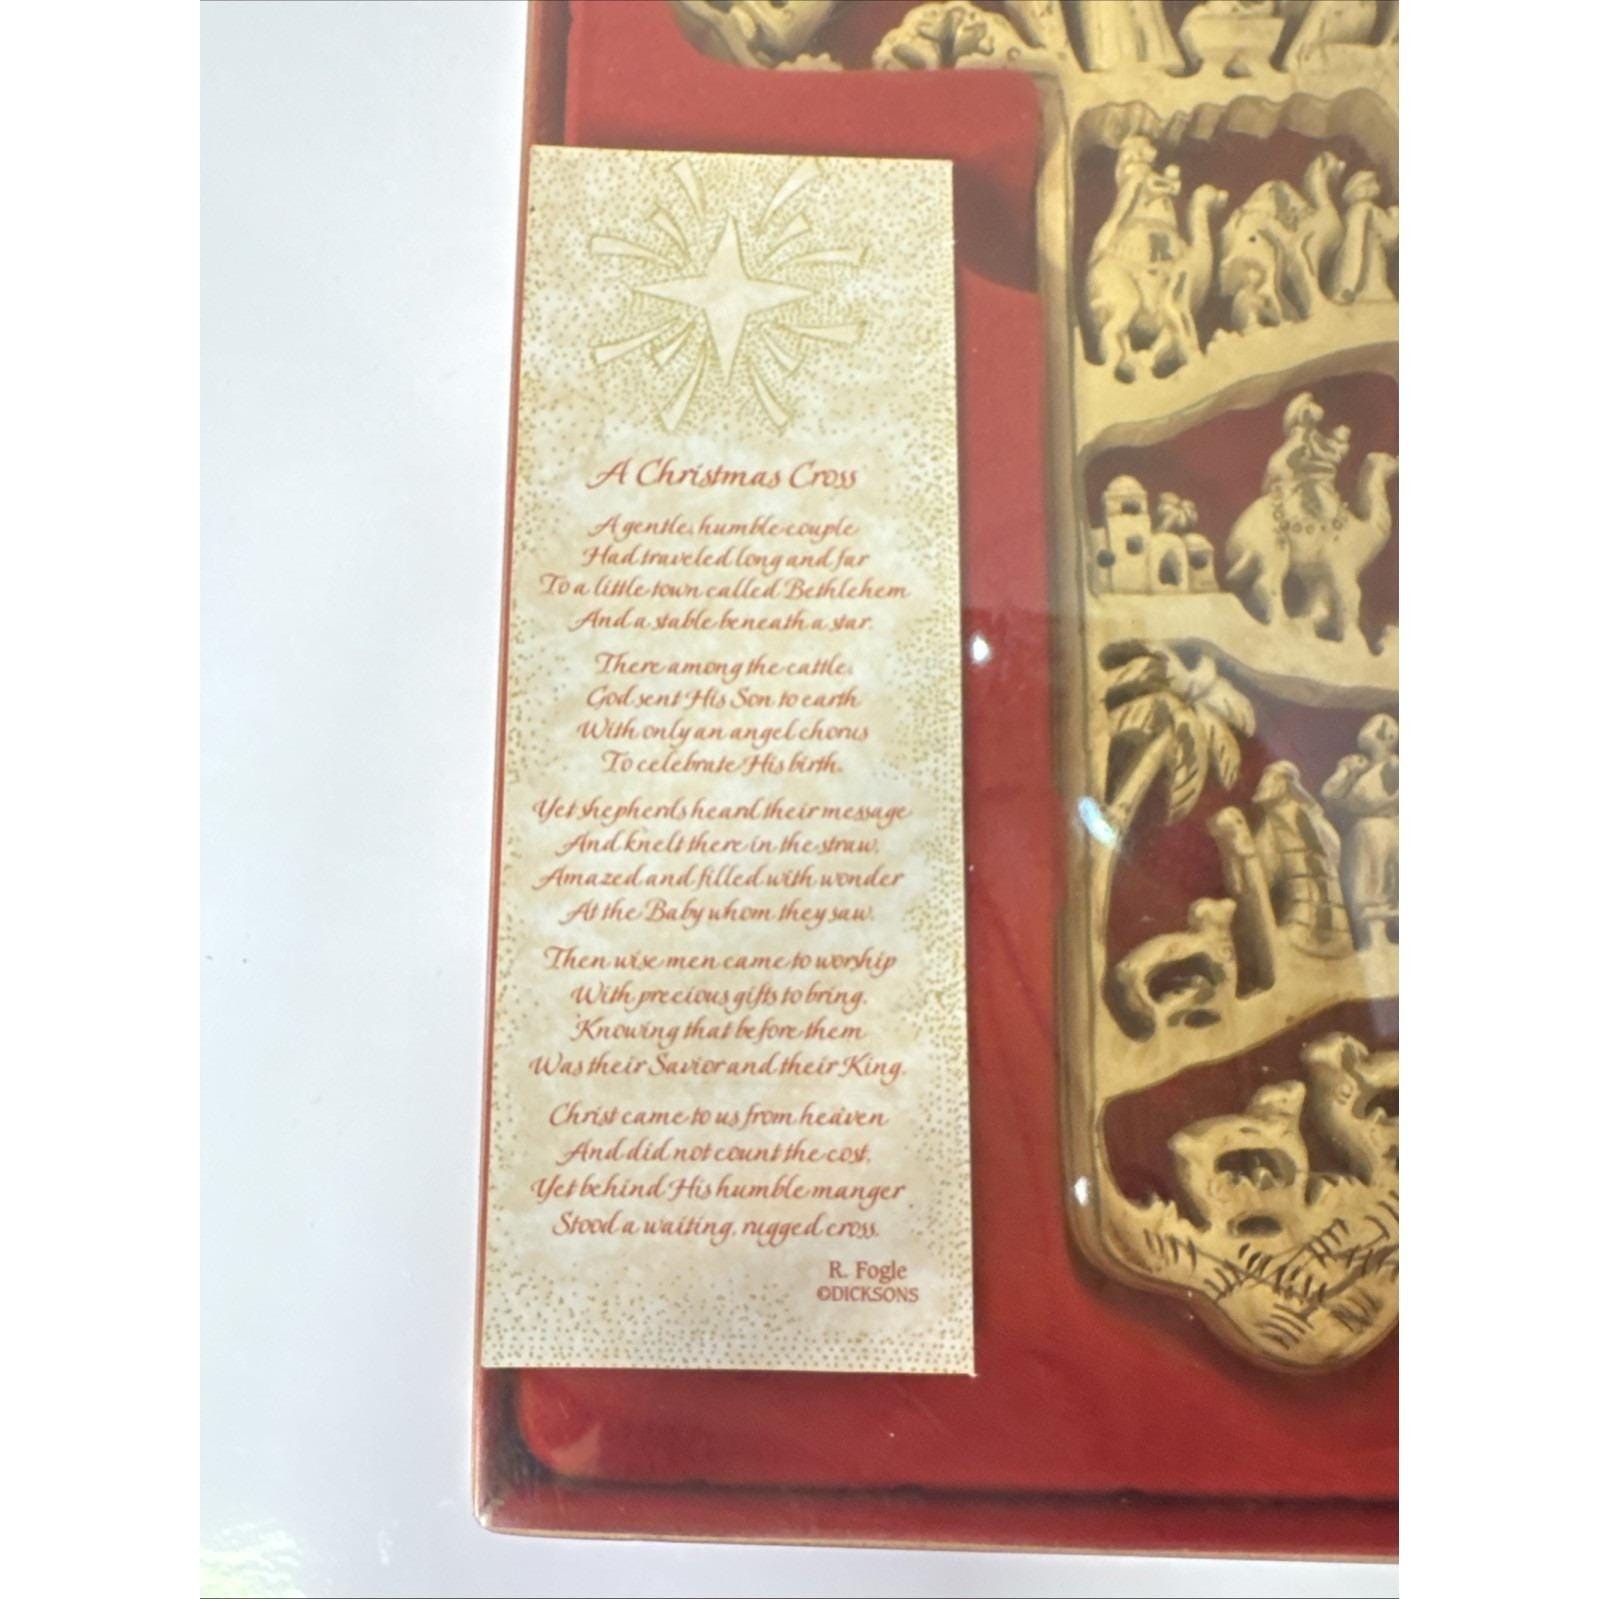 A Christmas Cross
A gentle, humble couple
Had traveled long and far
To a little town called Bethlehem
And a stable beneath a star.
There among the cattle,
God sent His Son to earth
With only an angel chorus
To celebrate His birth.
Yet shepherds heard their message
And knelt there in the straw,
Amazed and filled with wonder
At the Baby whom they saw.
Then wise men came to worship
With precious gifts to bring,
Knowing that before them
Was their Savior and their King.
Christ came to us from heaven
And did not count the cost,
Yet behind His humble manger
Stood a waiting, rugged cross.
R. Fogle
©DICKSONS